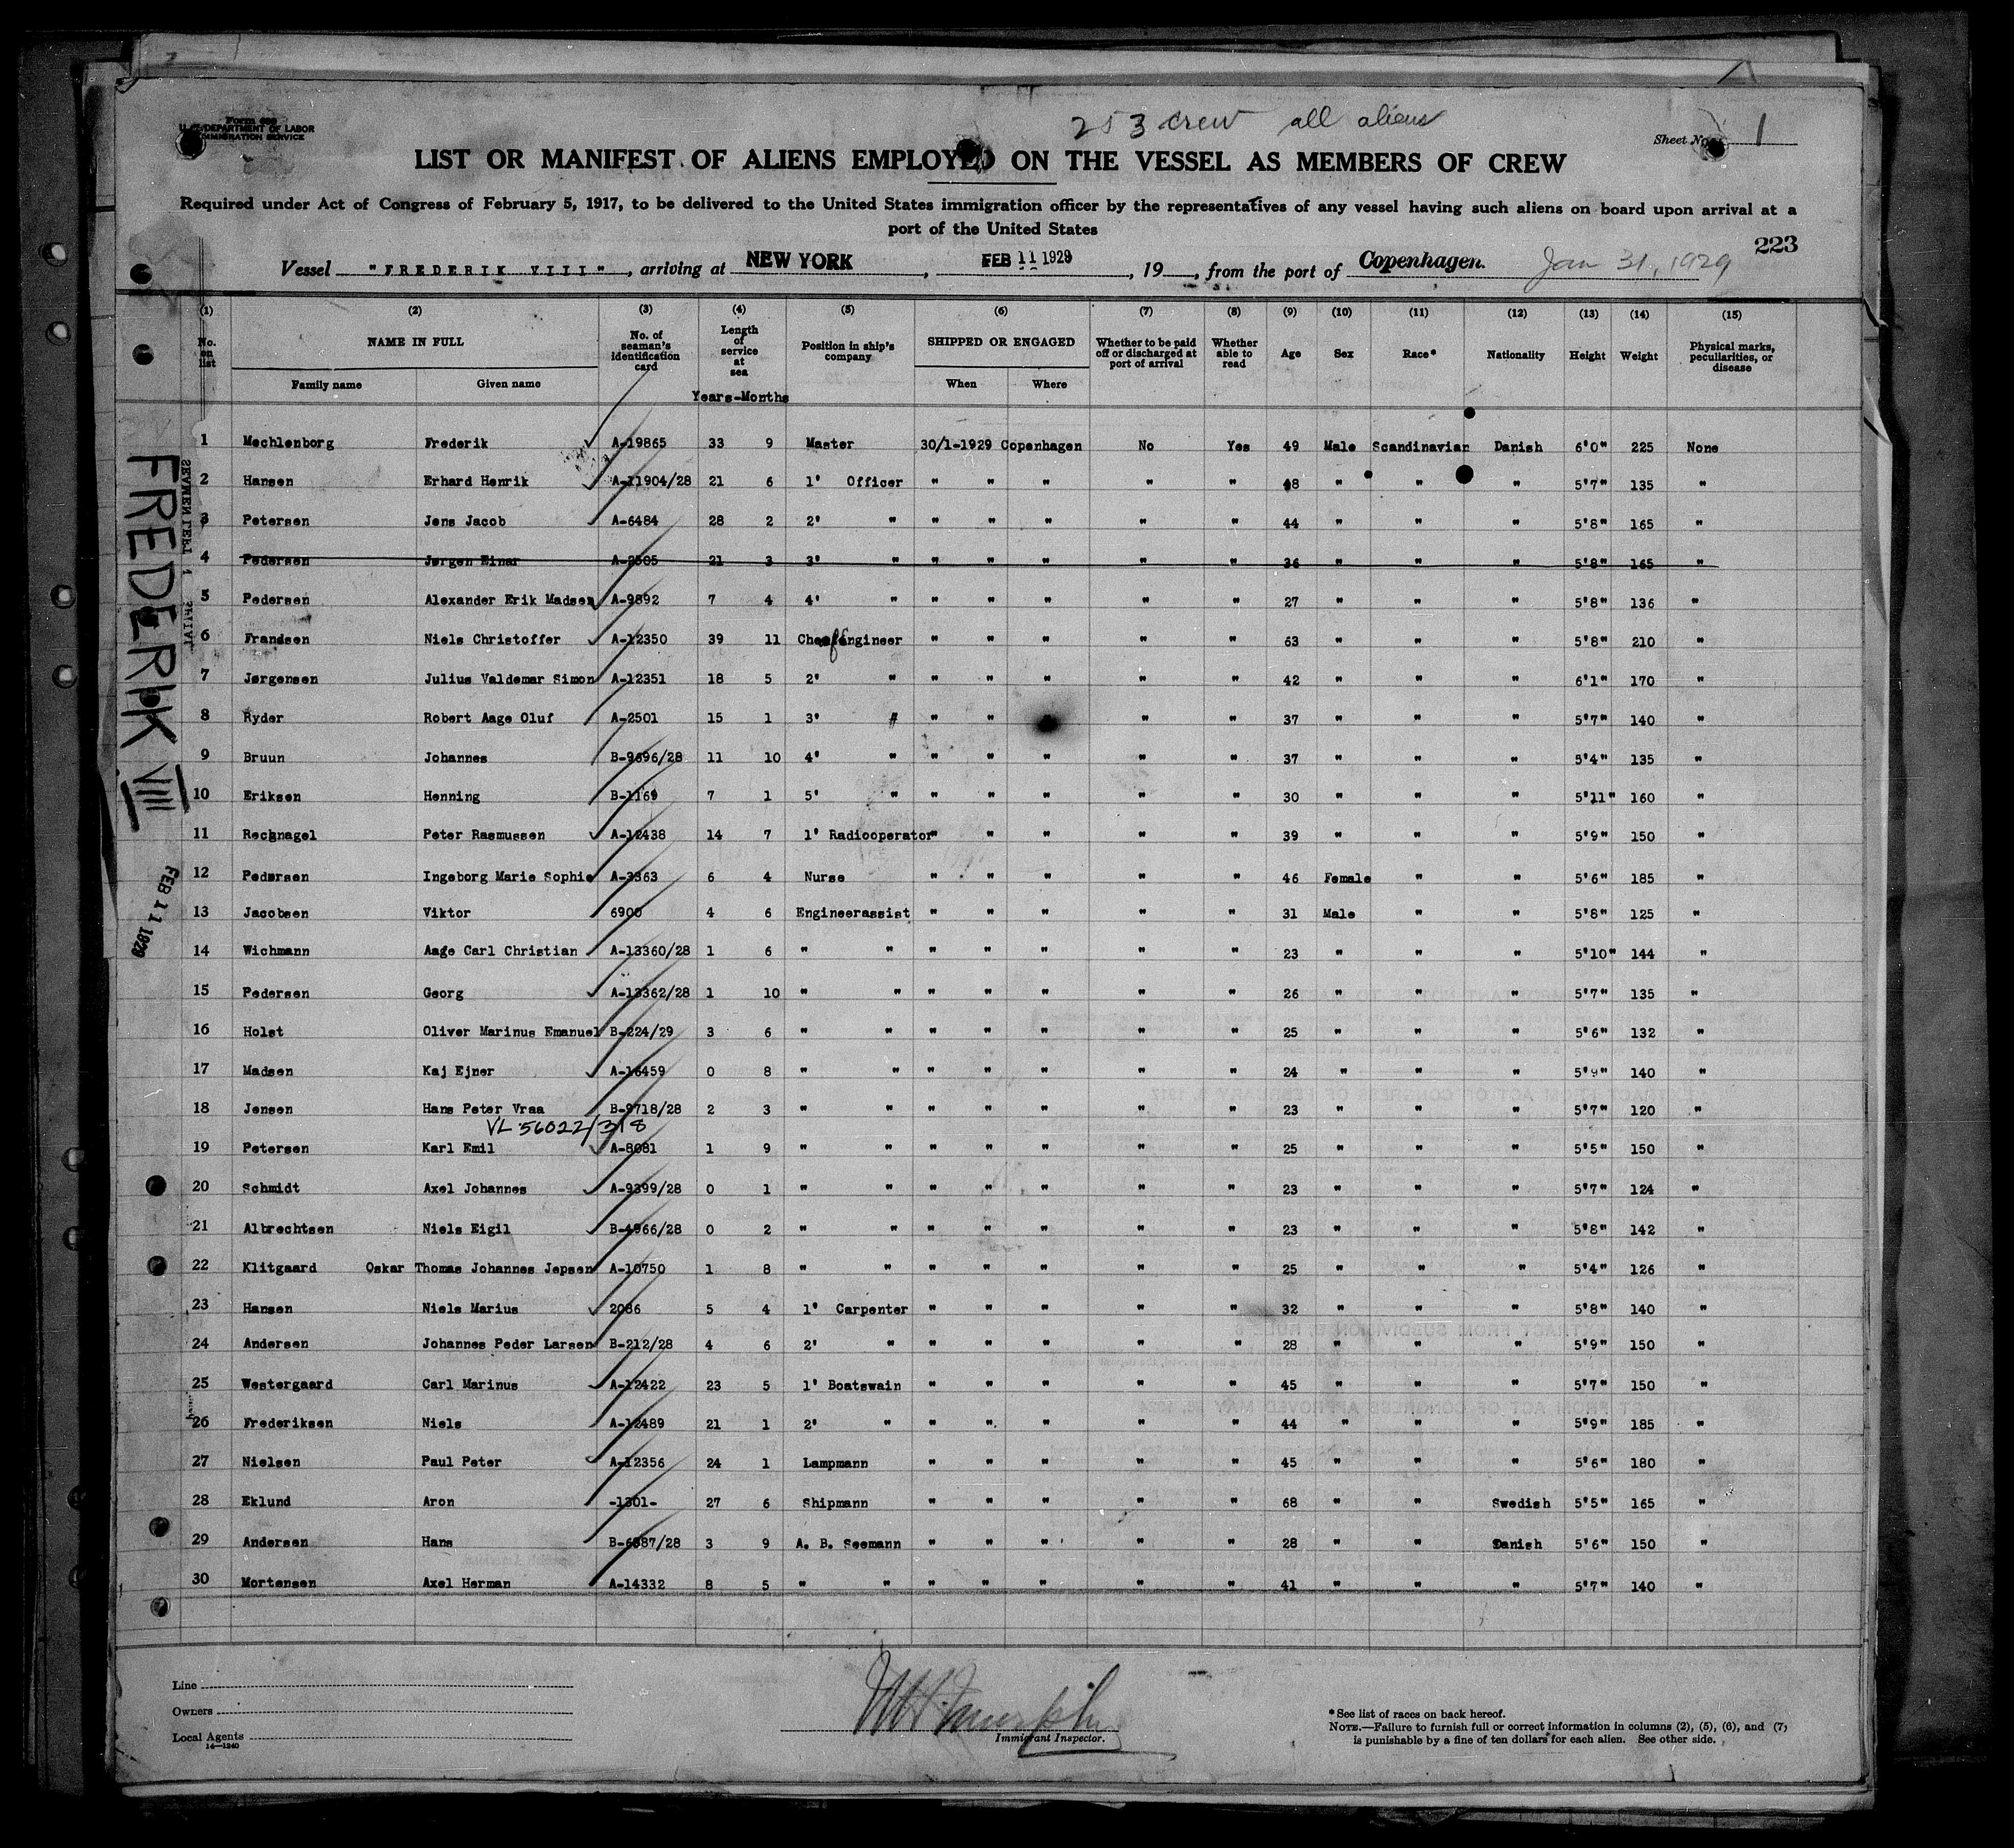 253 crew all aliens
Form 680
U. S. DEPARTMENT OF LABOR
IMMIGRATION SERVICE
Sheet No. 1
LIST OR MANIFEST OF ALIENS EMPLOYED ON THE VESSEL AS MEMBERS OF CREW
Required under Act of Congress of February 5, 1917, to be delivered to the United States immigration officer by the representatives of any vessel having such aliens on board upon arrival at a
port of the United States
223
Vessel "FREDERIK VIII", arriving at NEW YORK, FEB 11 1929, 19 , from the port of Copenhagen. Jan 31, 1929
(1) (2) (3) (4) (5) (6) (7) (8) (9) (10) (11) (12) (13) (14) (15)
No. on list NAME IN FULL Family name Given name No. of seaman's identification card Length of service at sea Position in ship's company SHIPPED OR ENGAGED When Where Whether to be paid off or discharged at port of arrival Whether able to read Age Sex Race* Nationality Height Weight Physical marks, peculiarities, or disease
Years-Months
1 Mechlenborg Frederik A-19865 33 9 Master 30/1-1929 Copenhagen No Yes 49 Male Scandinavian Danish 6'0" 225 None
2 Hansen Erhard Henrik A-11904/28 21 6 1' Officer " " " " " 48 " " " 5'7" 135 "
3 Petersen Jens Jacob A-6484 28 2 2' " " " " " " 44 " " " 5'8" 165 "
4 Pedersen Jørgen Einar A-2505 21 3 3' " " " " " " 36 " " " 5'8" 165 "
5 Pedersen Alexander Erik Madsen A-9892 7 4 4' " " " " " " 27 " " " 5'8" 136 "
6 Frandsen Niels Christoffer A-12350 39 11 Chief Engineer " " " " " 63 " " " 5'8" 210 "
7 Jørgensen Julius Valdemar Simon A-12351 18 5 2' " " " " " " 42 " " " 6'1" 170 "
8 Ryder Robert Aage Oluf A-2501 15 1 3' " " " " " " 37 " " " 5'7" 140 "
9 Bruun Johannes B-9696/28 11 10 4' " " " " " " 37 " " " 5'4" 135 "
10 Eriksen Henning B-1169 7 1 5' " " " " " " 30 " " " 5'11" 160 "
11 Rechnagel Peter Rasmussen A-12438 14 7 1' Radiooperator " " " " " 39 " " " 5'9" 150 "
12 Pedersen Ingeborg Marie Sophie A-3363 6 4 Nurse " " " " " 46 Female " " 5'6" 185 "
13 Jacobsen Viktor 6900 4 6 Engineerassist " " " " " 31 Male " " 5'8" 125 "
14 Wichmann Aage Carl Christian A-13360/28 1 6 " " " " " " " 23 " " " 5'10" 144 "
15 Pedersen Georg A-13362/28 1 10 " " " " " " " 26 " " " 5'7" 135 "
16 Holst Oliver Marinus Emanuel B-224/29 3 6 " " " " " " " 25 " " " 5'6" 132 "
17 Madsen Kaj Ejner A-16459 0 8 " " " " " " " 24 " " " 5'9" 140 "
18 Jensen Hans Peter Vraa B-9718/28 2 3 " " " " " " " 23 " " " 5'7" 120 "
VL 56022/318
19 Petersen Karl Emil A-8081 1 9 " " " " " " " 25 " " " 5'5" 150 "
20 Schmidt Axel Johannes A-9399/28 0 1 " " " " " " " 23 " " " 5'7" 124 "
21 Albrechtsen Niels Eigil B-4966/28 0 2 " " " " " " " 23 " " " 5'8" 142 "
22 Klitgaard Oskar Thomas Johannes Jepsen A-10750 1 8 " " " " " " " 25 " " " 5'4" 126 "
23 Hansen Niels Marius 2086 5 4 1' Carpenter " " " " " 32 " " " 5'8" 140 "
24 Andersen Johannes Peder Larsen B-212/28 4 6 2' " " " " " " 28 " " " 5'9" 150 "
25 Westergaard Carl Marinus A-12422 23 5 1' Boatswain " " " " " 45 " " " 5'7" 150 "
26 Frederiksen Niels A-12489 21 1 2' " " " " " " 44 " " " 5'9" 185 "
27 Nielsen Paul Peter A-12356 24 1 Lampmann " " " " " 45 " " " 5'6" 180 "
28 Eklund Aron -1301- 27 6 Shipmann " " " " " 68 " " Swedish 5'5" 165 "
29 Andersen Hans B-6587/28 3 9 A. B. Seemann " " " " " 28 " " Danish 5'6" 150 "
30 Mortensen Axel Herman A-14332 8 5 " " " " " " " 41 " " " 5'7" 140 "
FREDERIK VIII
FEB 11 1929
Line
Owners
Local Agents
14—1240
Immigrant Inspector.
*See list of races on back hereof.
NOTE.—Failure to furnish full or correct information in columns (2), (5), (6), and (7)
is punishable by a fine of ten dollars for each alien. See other side.